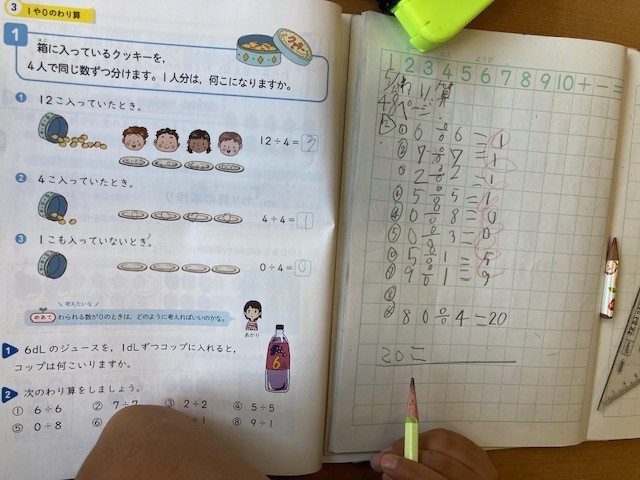 3 1や0のわり算
1
箱に入っているクッキーを,
4人で同じ数ずつ分けます。1人分は,何こになりますか。
1 12こ入っていたとき。
12÷4=3
2 4こ入っていたとき。
4÷4=1
3 1こも入っていないとき。
0÷4=0
考えたいな
めあて わられる数が0のときは,どのように考えればいいのかな。
あかり
1 6dLのジュースを,1dLずつコップに入れると,
コップは何こいりますか。
6
2 次のわり算をしましょう。
① 6÷6 ② 7÷7 ③ 2÷2 ④ 5÷5
⑤ 0÷8 ⑥ ÷1 ⑧ 9÷1
1 2 3 4 5 6 7 8 9 10 + - =
わり算
6÷6=1
7÷7=1
2÷2=1
5÷5=1
0÷8=0
0÷3=0
5÷1=5
9÷1=9
80÷4=20
20こ